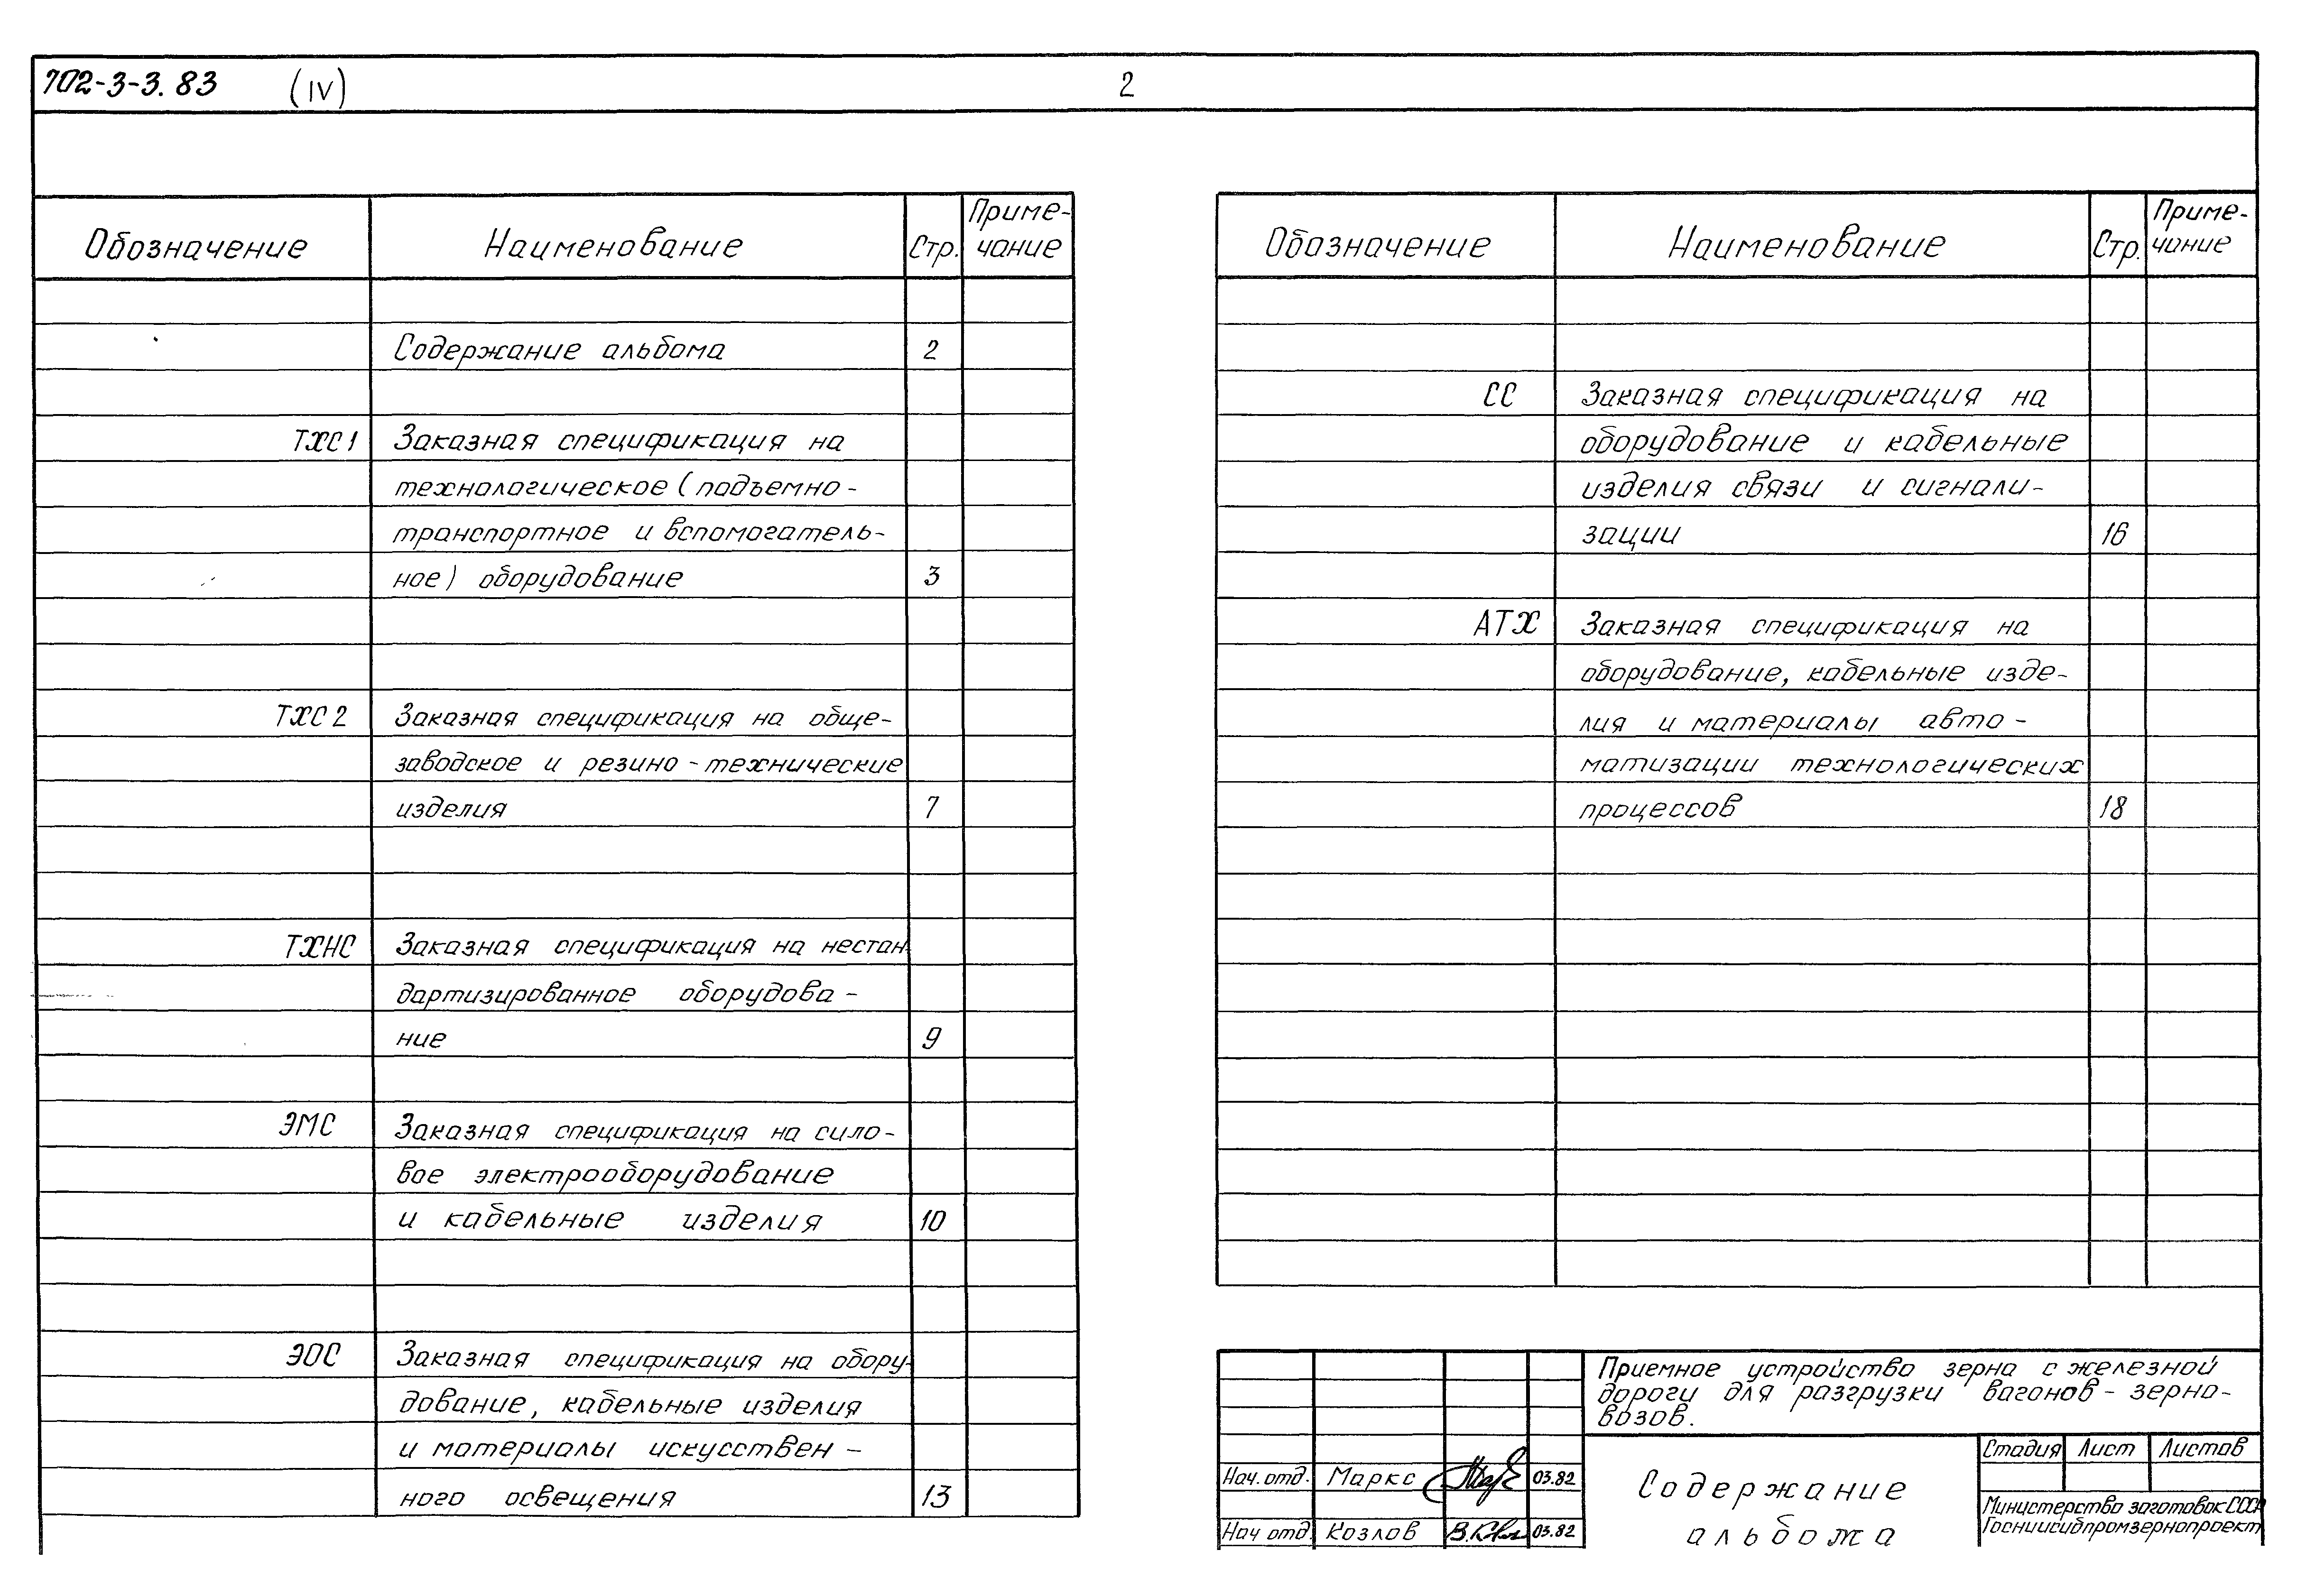 702-3-3.83 (IV) 2
Обозначение Наименование Стр. Приме-
чание
Содержание альбома 2
ТХС1 Заказная спецификация на
технологическое (подъемно-
транспортное и вспомогатель-
ное) оборудование 3
ТХС2 Заказная спецификация на обще-
заводское и резино-технические
изделия 7
ТХНС Заказная спецификация на нестан-
дартизированное оборудова-
ние 9
ЭМС Заказная спецификация на сило-
вое электрооборудование
и кабельные изделия 10
ЭОС Заказная спецификация на обору-
дование, кабельные изделия
и материалы искусствен-
ного освещения 13
Обозначение Наименование Стр. Приме-
чание
СС Заказная спецификация на
оборудование и кабельные
изделия связи и сигнали-
зации 16
АТХ Заказная спецификация на
оборудование, кабельные изде-
лия и материалы авто-
матизации технологических
процессов 18
Приемное устройство зерна с железной
дороги для разгрузки вагонов-зерно-
возов.
Нач. отд. Маркс 03.82
Нач отд. Козлов 03.82
Содержание
альбома
Стадия Лист Листов
Министерство заготовок СССР
Госниисибпромзернопроект